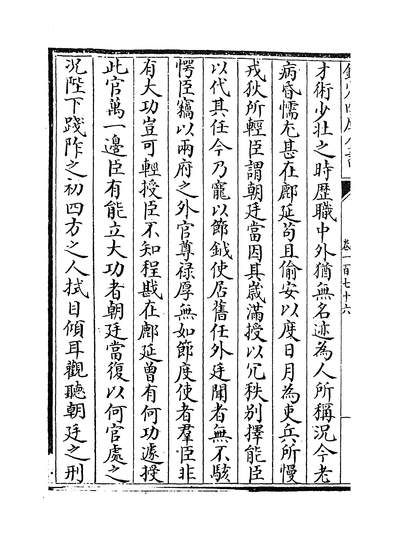 欽定四庫全書
卷一百七十六
才術少壯之時歷職中外猶無名迹為人所稱況今老
病昏懦尤甚在鄜延茍且偷安以度日月為吏兵所慢
戎狄所輕臣謂朝廷當因其歲滿授以冗秩别擇能臣
以代其任今乃寵以節鉞使居舊任外廷聞者無不駭
愕臣竊以兩府之外官尊禄厚無如節度使者羣臣非
有大功豈可輕授臣不知程戡在鄜延曾有何功遽授
此官萬一邊臣有能立大功者朝廷當復以何官處之
況陛下踐阼之初四方之人拭目傾耳觀聽朝廷之刑